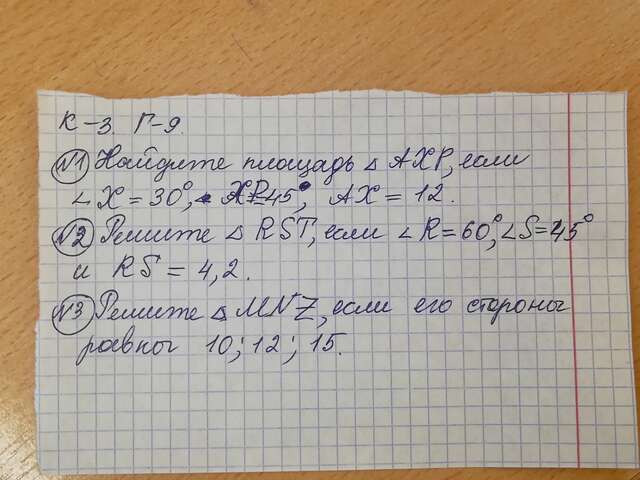 К-3. Г-9.
№1 Найдите площадь △ AXP, если
∠X = 30°, ∠ XP=45°, AX = 12.
№2 Решите △ RST, если ∠R=60°, ∠S=45°
и RS = 4,2.
№3 Решите △ MNZ, если его стороны
равны 10; 12; 15.